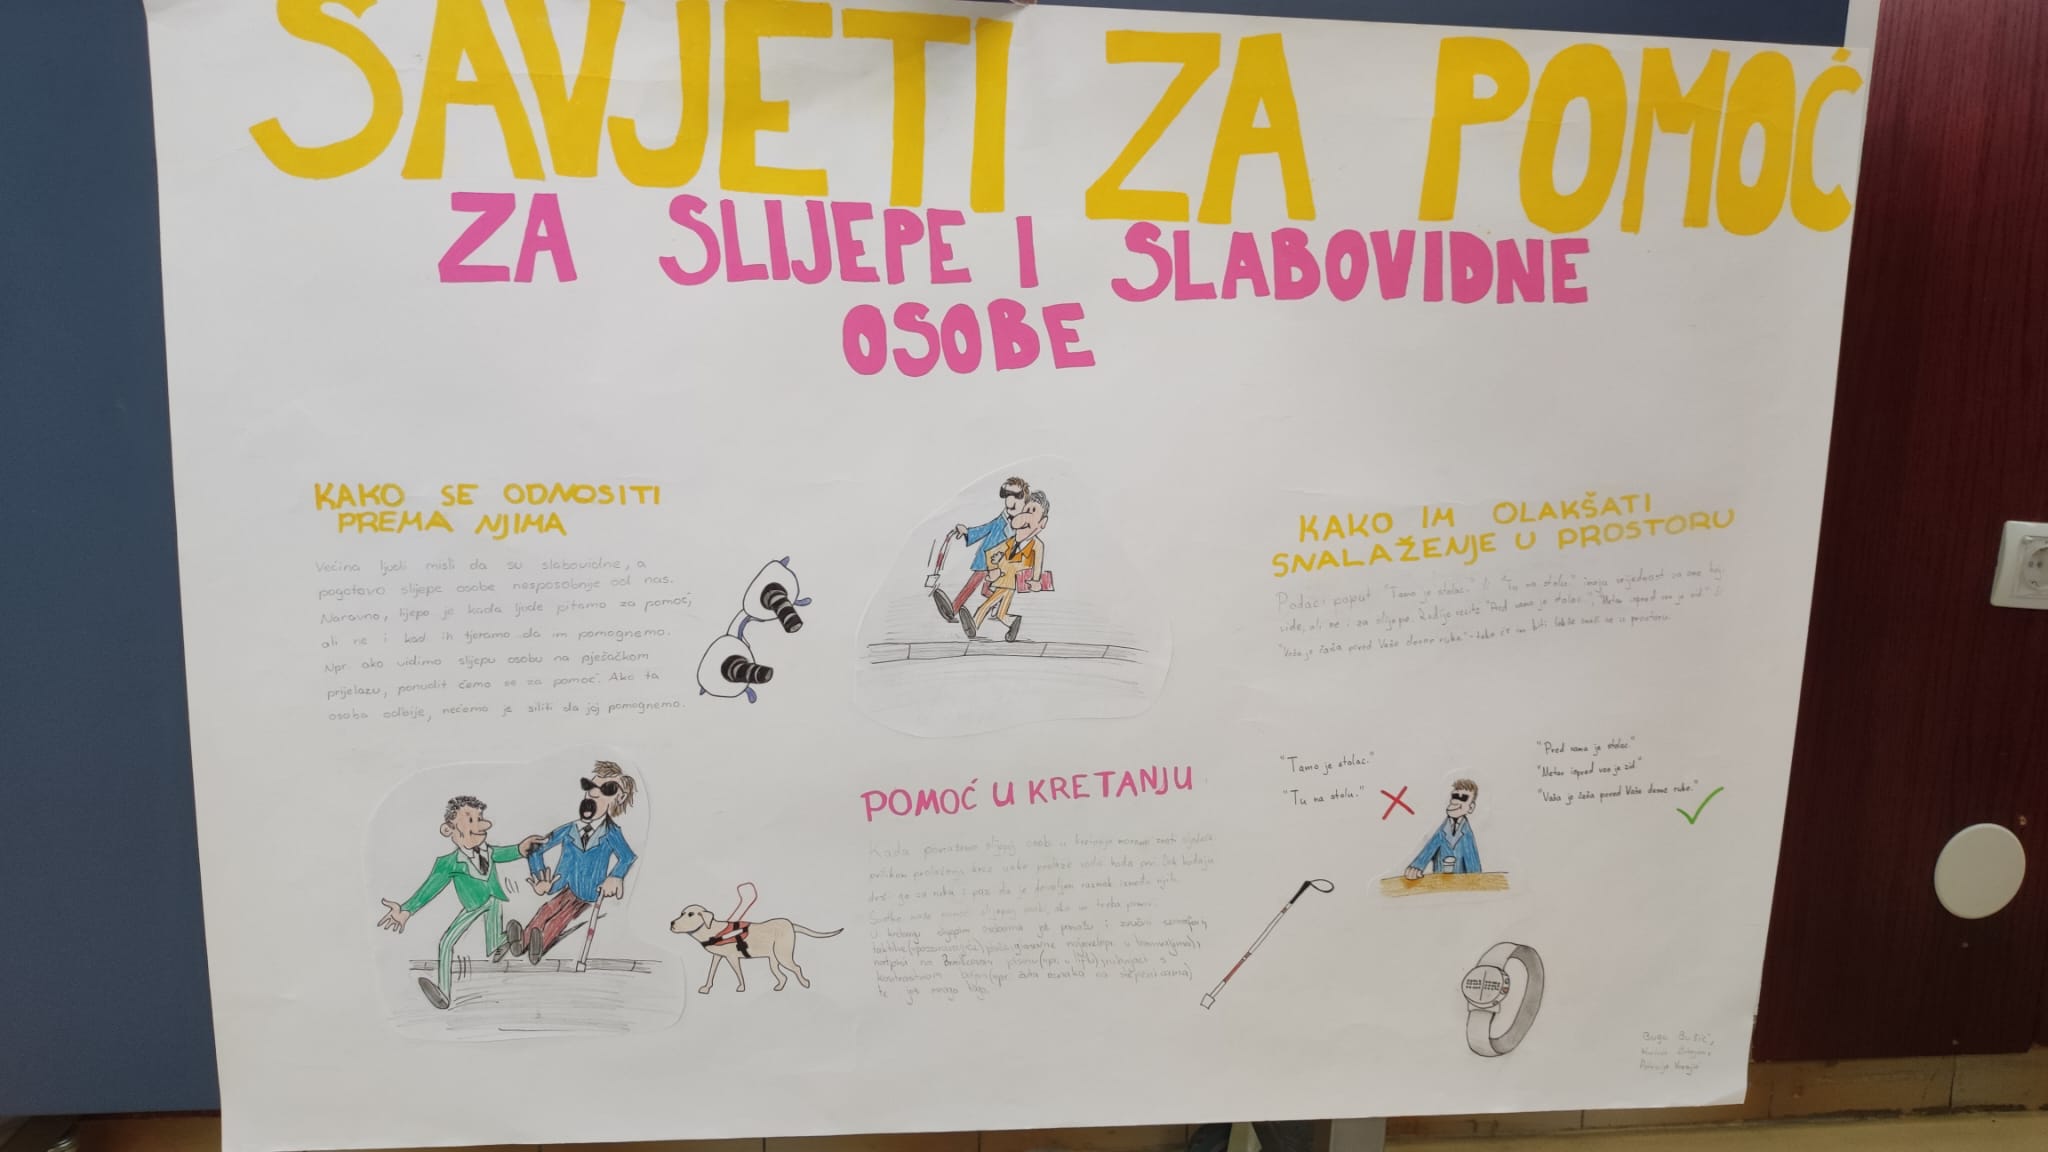 SAVJETI ZA POMOĆ
ZA SLIJEPE I SLABOVIDNE
OSOBE
KAKO SE ODNOSITI
PREMA NJIMA
Većina ljudi misli da su slabovidne, a
pogotovo slijepe osobe nesposobnije od nas.
Naravno, lijepo je kada ljude pitamo za pomoć,
ali ne i kad ih tjeramo da im pomognemo.
Npr. ako vidimo slijepu osobu na pješačkom
prijelazu, ponudit ćemo se za pomoć. Ako ta
osoba odbije, nećemo je siliti da joj pomognemo.
POMOĆ U KRETANJU
Kada pomažemo slijepoj osobi u kretanju moramo znati sljedeće:
prilikom prolaženja kroz uske prolaze vodič hoda prvi. Dok hodaju
drži ga za ruku i pazi da je dovoljan razmak između njih.
U kretanju slijepim osobama još pomažu i zvučni semafori,
taktilne (upozoravajuće) ploče, glasovne najave (npr. u tramvajima),
natpisi na Brailleovom pismu (npr. u liftu), rubovi s
kontrastnom bojom (npr. žuta oznaka na stepenicama)
te još mnogo toga.
KAKO IM OLAKŠATI
SNALAŽENJE U PROSTORU
Podaci poput "Tamo je stolac." i "Tu na stolu." imaju vrijednost za one koji
vide, ali ne i za slijepe. Radije recite "Pred vama je stolac.", "Metar ispred vas je zid." i
"Vaša je čaša pored Vaše desne ruke" - tako će im biti lakše snaći se u prostoru.
"Tamo je stolac."
"Tu na stolu."
"Pred vama je stolac."
"Metar ispred vas je zid"
"Vaša je čaša pored Vaše desne ruke."
Buga Bušić,